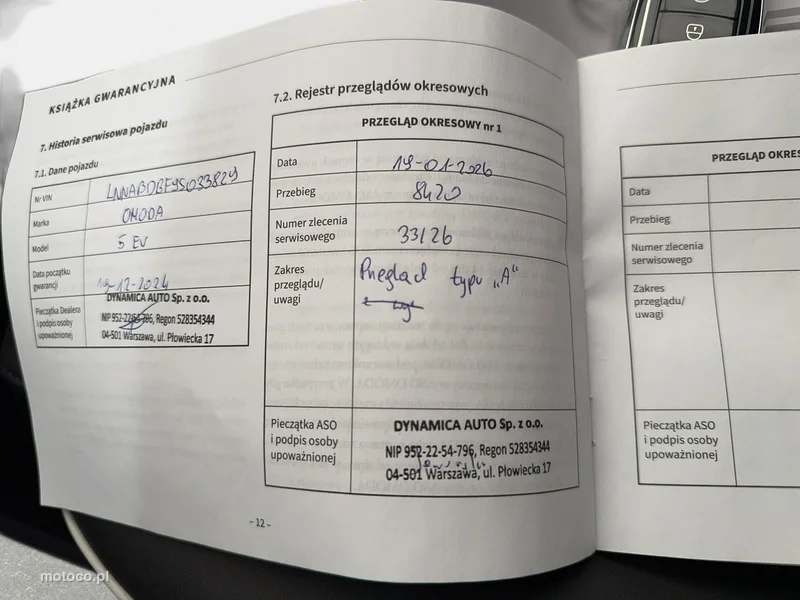 KSIĄŻKA GWARANCYJNA
7. Historia serwisowa pojazdu
7.1. Dane pojazdu
Nr VIN
Marka OMODA
Model 5 EV
Data początku gwarancji 19-12-2024
Pieczątka Dealera i podpis osoby upoważnionej
DYNAMICA AUTO Sp. z o.o.
NIP 952-22-54-796, Regon 528354344
04-501 Warszawa, ul. Płowiecka 17
7.2. Rejestr przeglądów okresowych
PRZEGLĄD OKRESOWY nr 1
Data 19-01-2026
Przebieg 8420
Numer zlecenia
serwisowego 33/26
Zakres
przeglądu/
uwagi
Przegląd typu „A"
Pieczątka ASO
i podpis osoby
upoważnionej
DYNAMICA AUTO Sp. z o.o.
NIP 952-22-54-796, Regon 528354344
04-501 Warszawa, ul. Płowiecka 17
-12-
PRZEGLĄD OKRES
Data
Przebieg
Numer zlecenia
serwisowego
Zakres
przeglądu/
uwagi
Pieczątka ASO
i podpis osoby
upoważnionej
motoco.pl